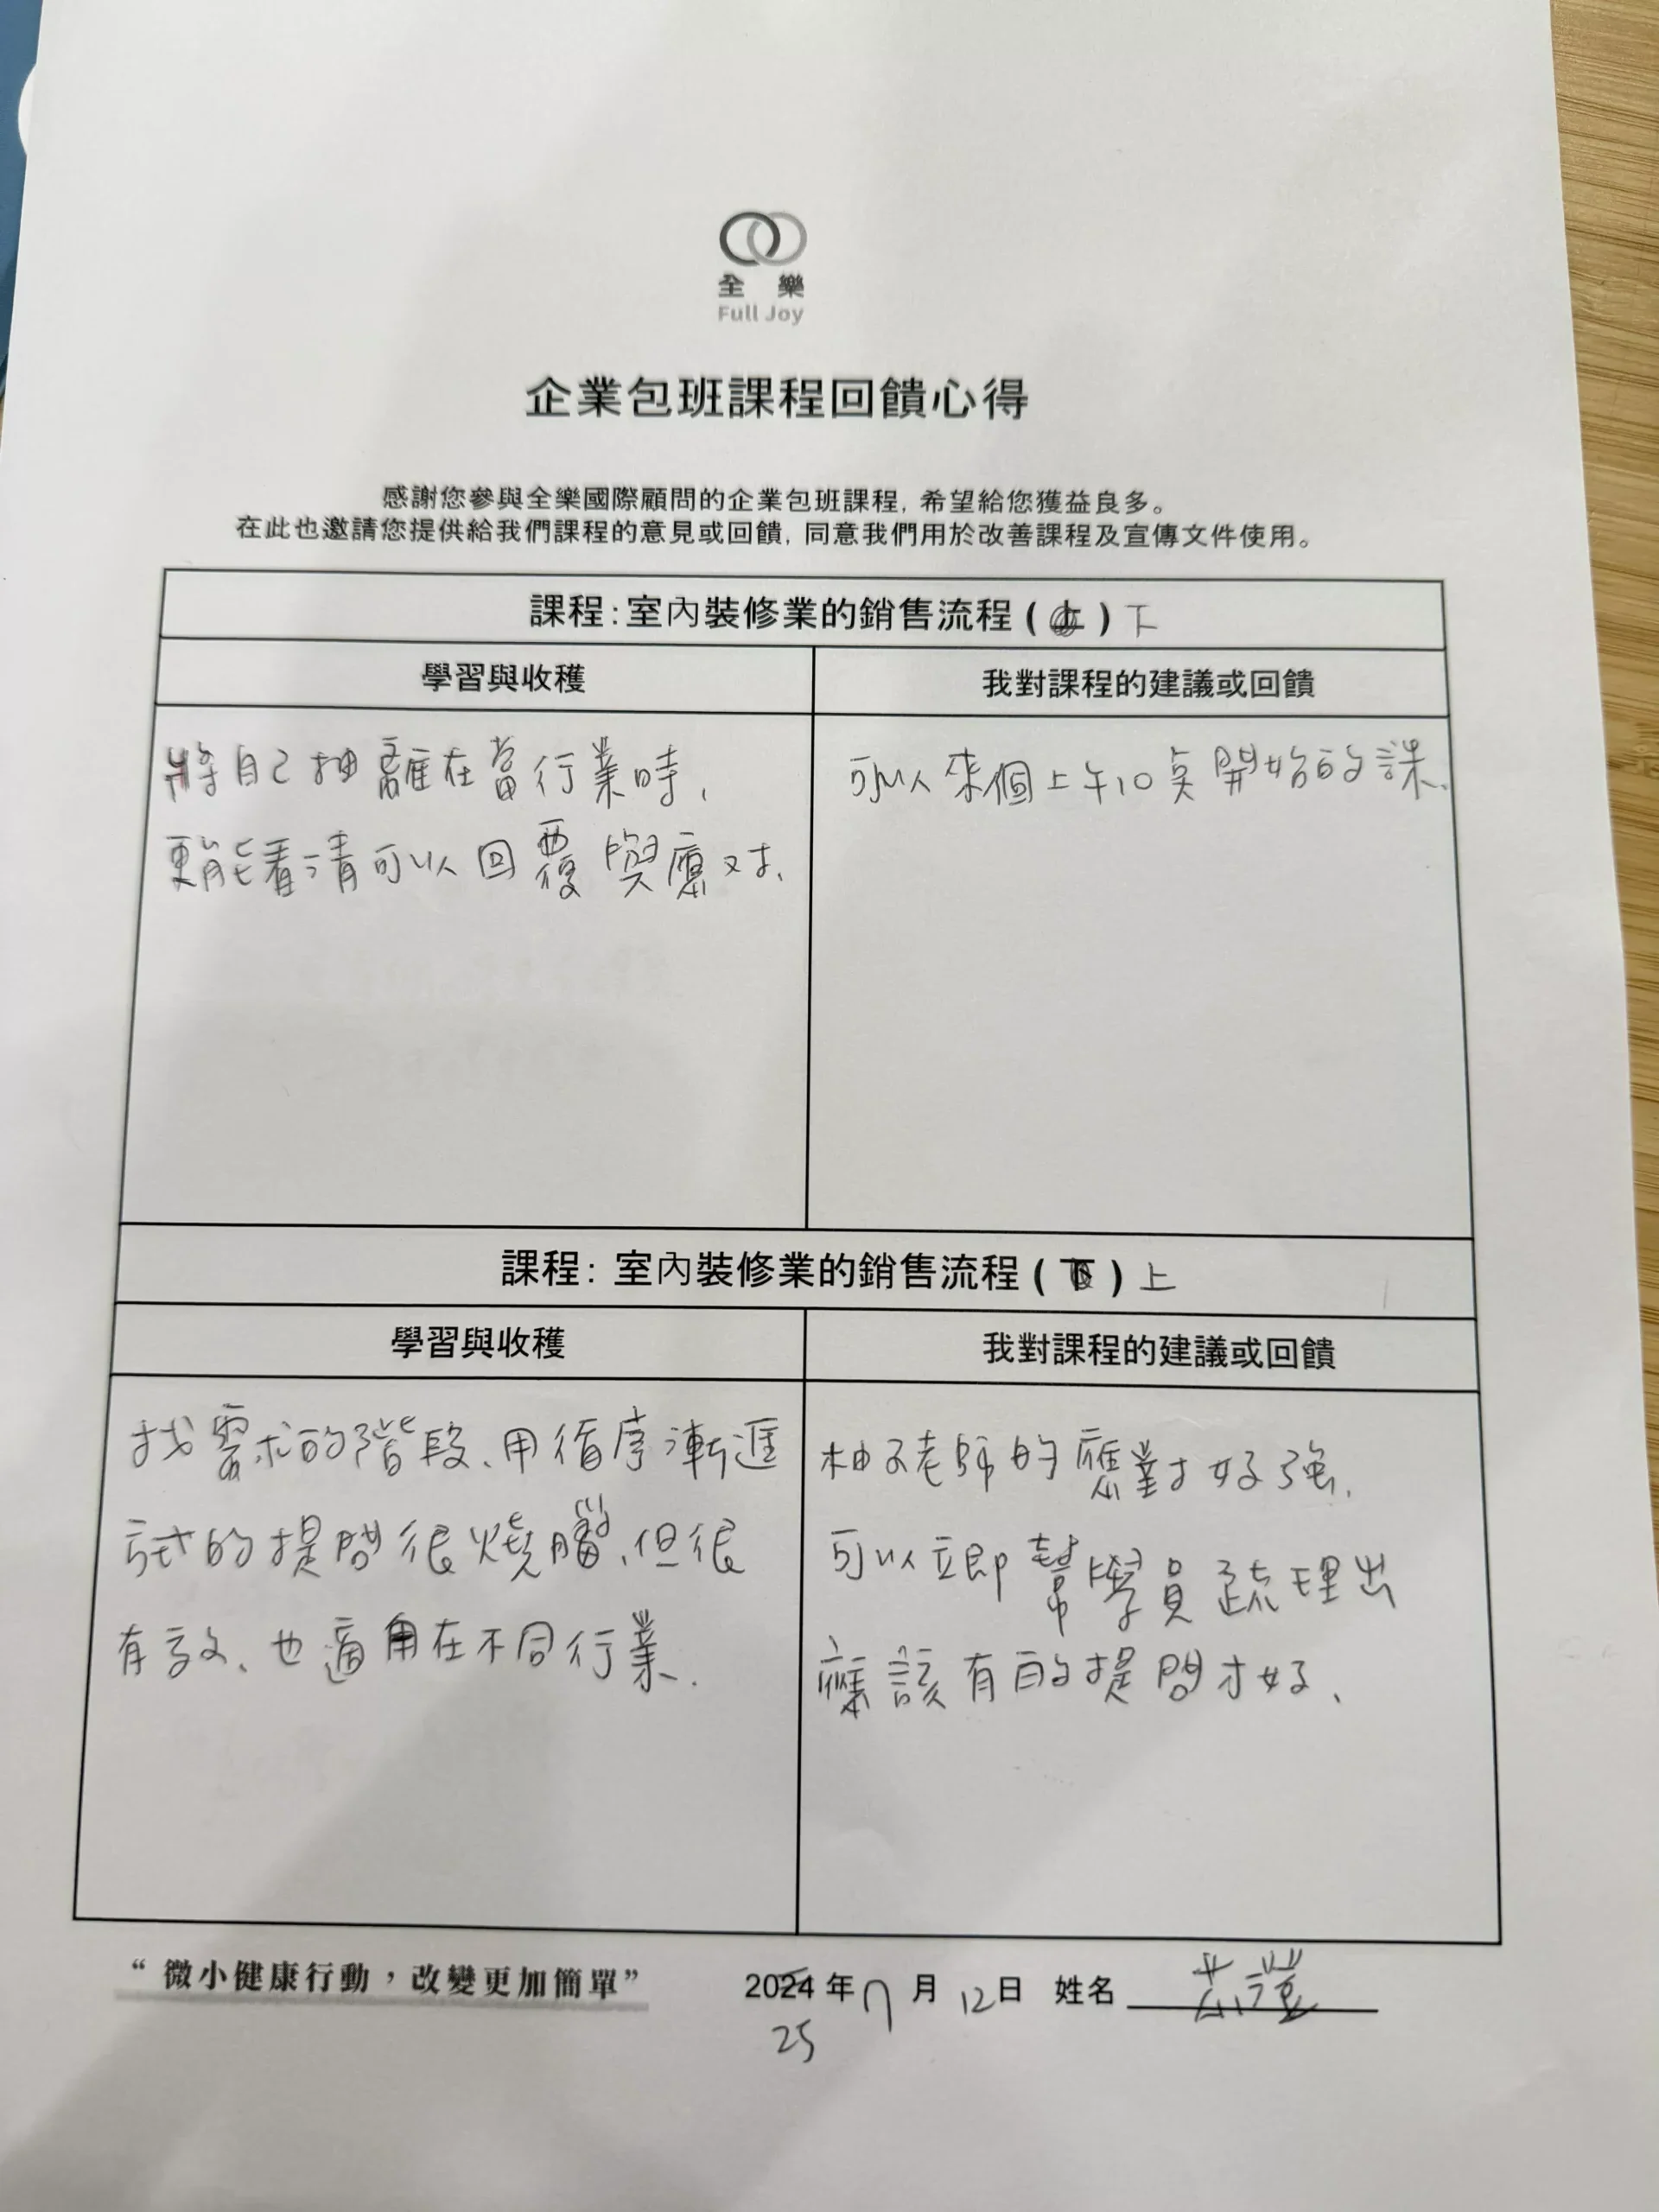 全樂
Full Joy
企業包班課程回饋心得
感謝您參與全樂國際顧問的企業包班課程,希望給您獲益良多。
在此也邀請您提供給我們課程的意見或回饋,同意我們用於改善課程及宣傳文件使用。
課程:室內裝修業的銷售流程(上)下
學習與收穫
我對課程的建議或回饋
將自己抽離在當行業時、
更能看清可以回覆與應对、
可以來個上午10点開始的課、
課程: 室內裝修業的銷售流程(下)上
學習與收穫
我對課程的建議或回饋
找需求的階段、用循序漸進
式的提問很燒腦、但很
有效、也適用在不同行業.
柚子老師的應對才好強、
可以立即幫學員疏理出
應該有的提問才好、
“微小健康行動,改變更加簡單”
2024年7月12日 姓名
25